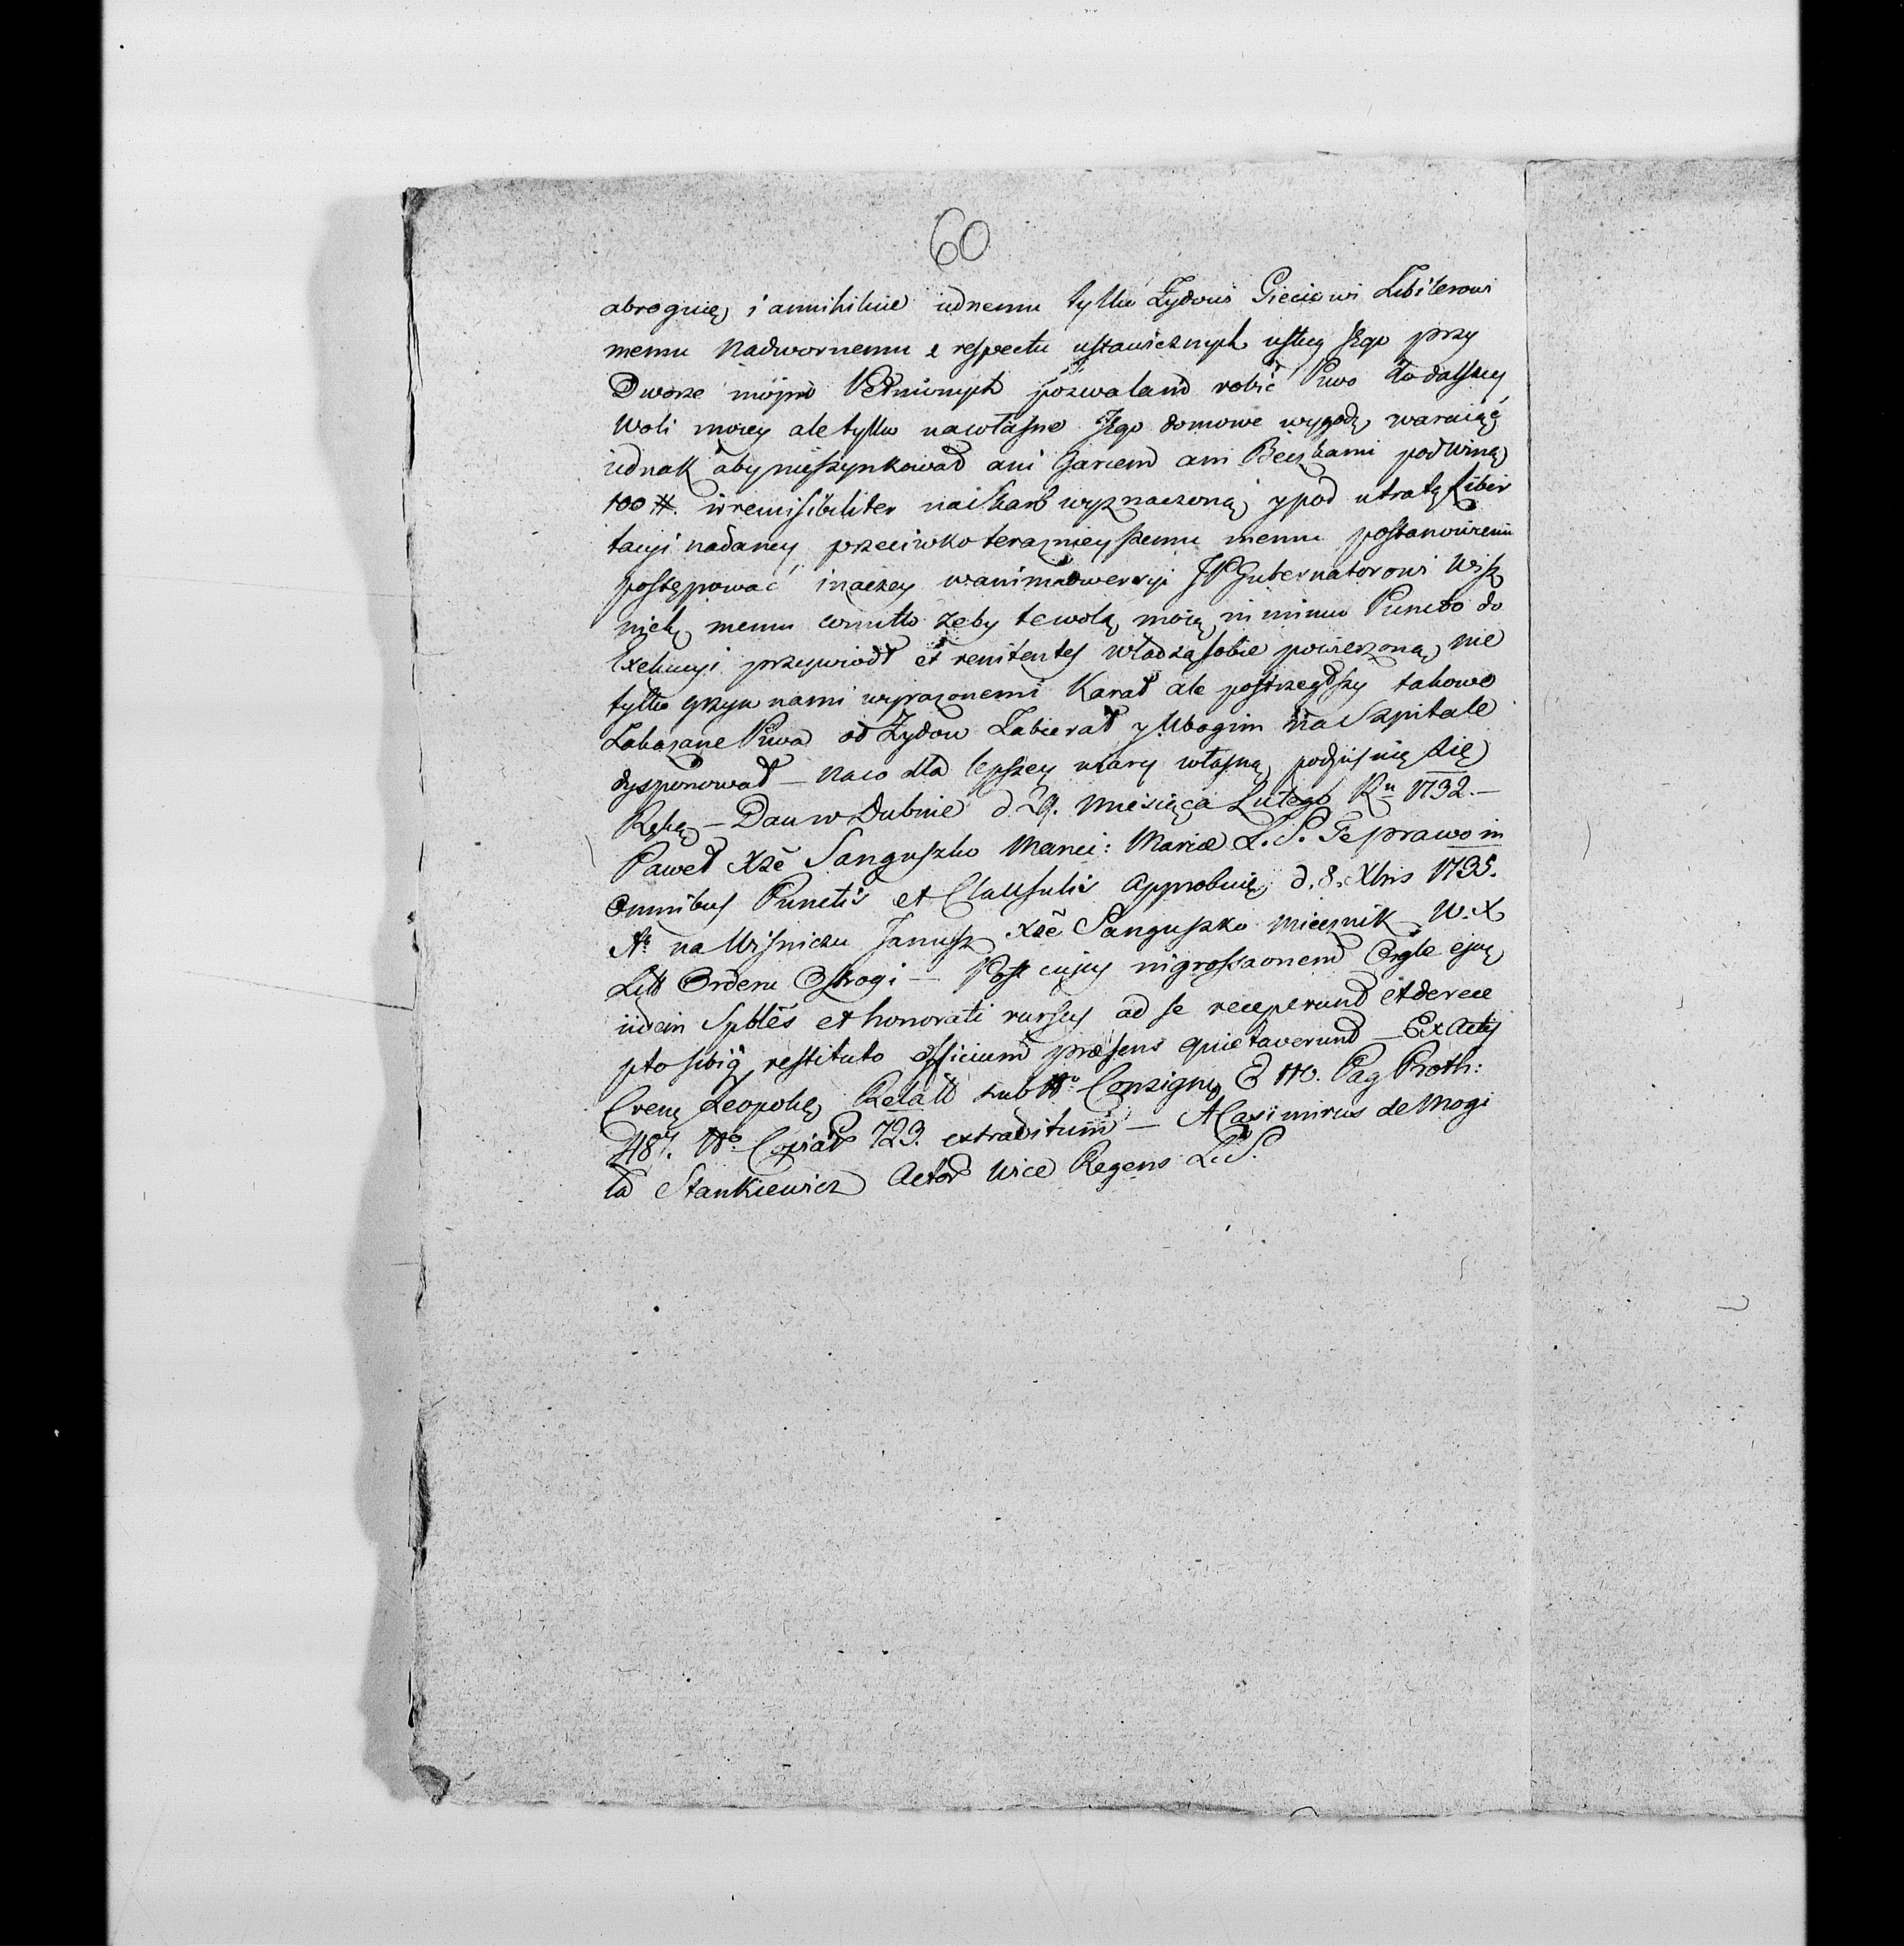 60
abroguię i annihiluie iednemu tylko Żydowi Gieciowi Libierowi
memu Nadwornemu e respectu ustawicznych usług Jego przy
Dworze moim Pełnionych pozwalam robić Piwo do dalszey
Woli moiey ale tylko na własne Jego domowe wygody waruiąc
iednak aby nieszynkował ani Garcem ani Beczkami pod winą
100 #. irremisibiliter na Skarb wyznaczoną y pod utratą Liber
tacyi nadaney przeciwko teraznieyszemu memu postanowieniu
postępować inaczey w animadwersyi JP Gubernatorowi Wisz
nickę memu comitto żeby te wolą moią in minu Puncto do
Exekucyi przywiodł et renitentes władzą sobie powierzoną nie
tylko grzywnami wyrazonemi Karał ale postrzegłszy takowe
Zakazane Piwa od Żydow Zabierał y Ubogim na Szpitale
dysponował — na co dla lepszey wiary własną podpisuię się
Ręką — Dan w Dubnie d. 29. Miesiąca Lutego Ru 1732. —
Paweł Xże Sanguszko Manu: Mariae L. S. Te prawo in
Omnibus Punctis et Clausulis Approbuię d. 8. Xbris 1735.
Ao na Wiśniczu Janusz Xże Sanguszko Miecznik W. X
Litt Orderu Ostrogi — Post cujus ingrossaonem Origle ejus
iidem Spbles et honorati rursus ad se receperund et de rece
pto sibiq restituto officium praesens quietaverund — Ex Actis
Crens Leopolis Relatt sub No Consigne E 110. Pag Proth:
487. No Copiat 723. extraditum — A Casimirus de Mogi
ła Stankiewicz Actor Vice Regens L. S.